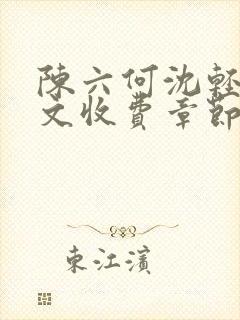 陳六何沈輕
文收費章節
東江濱